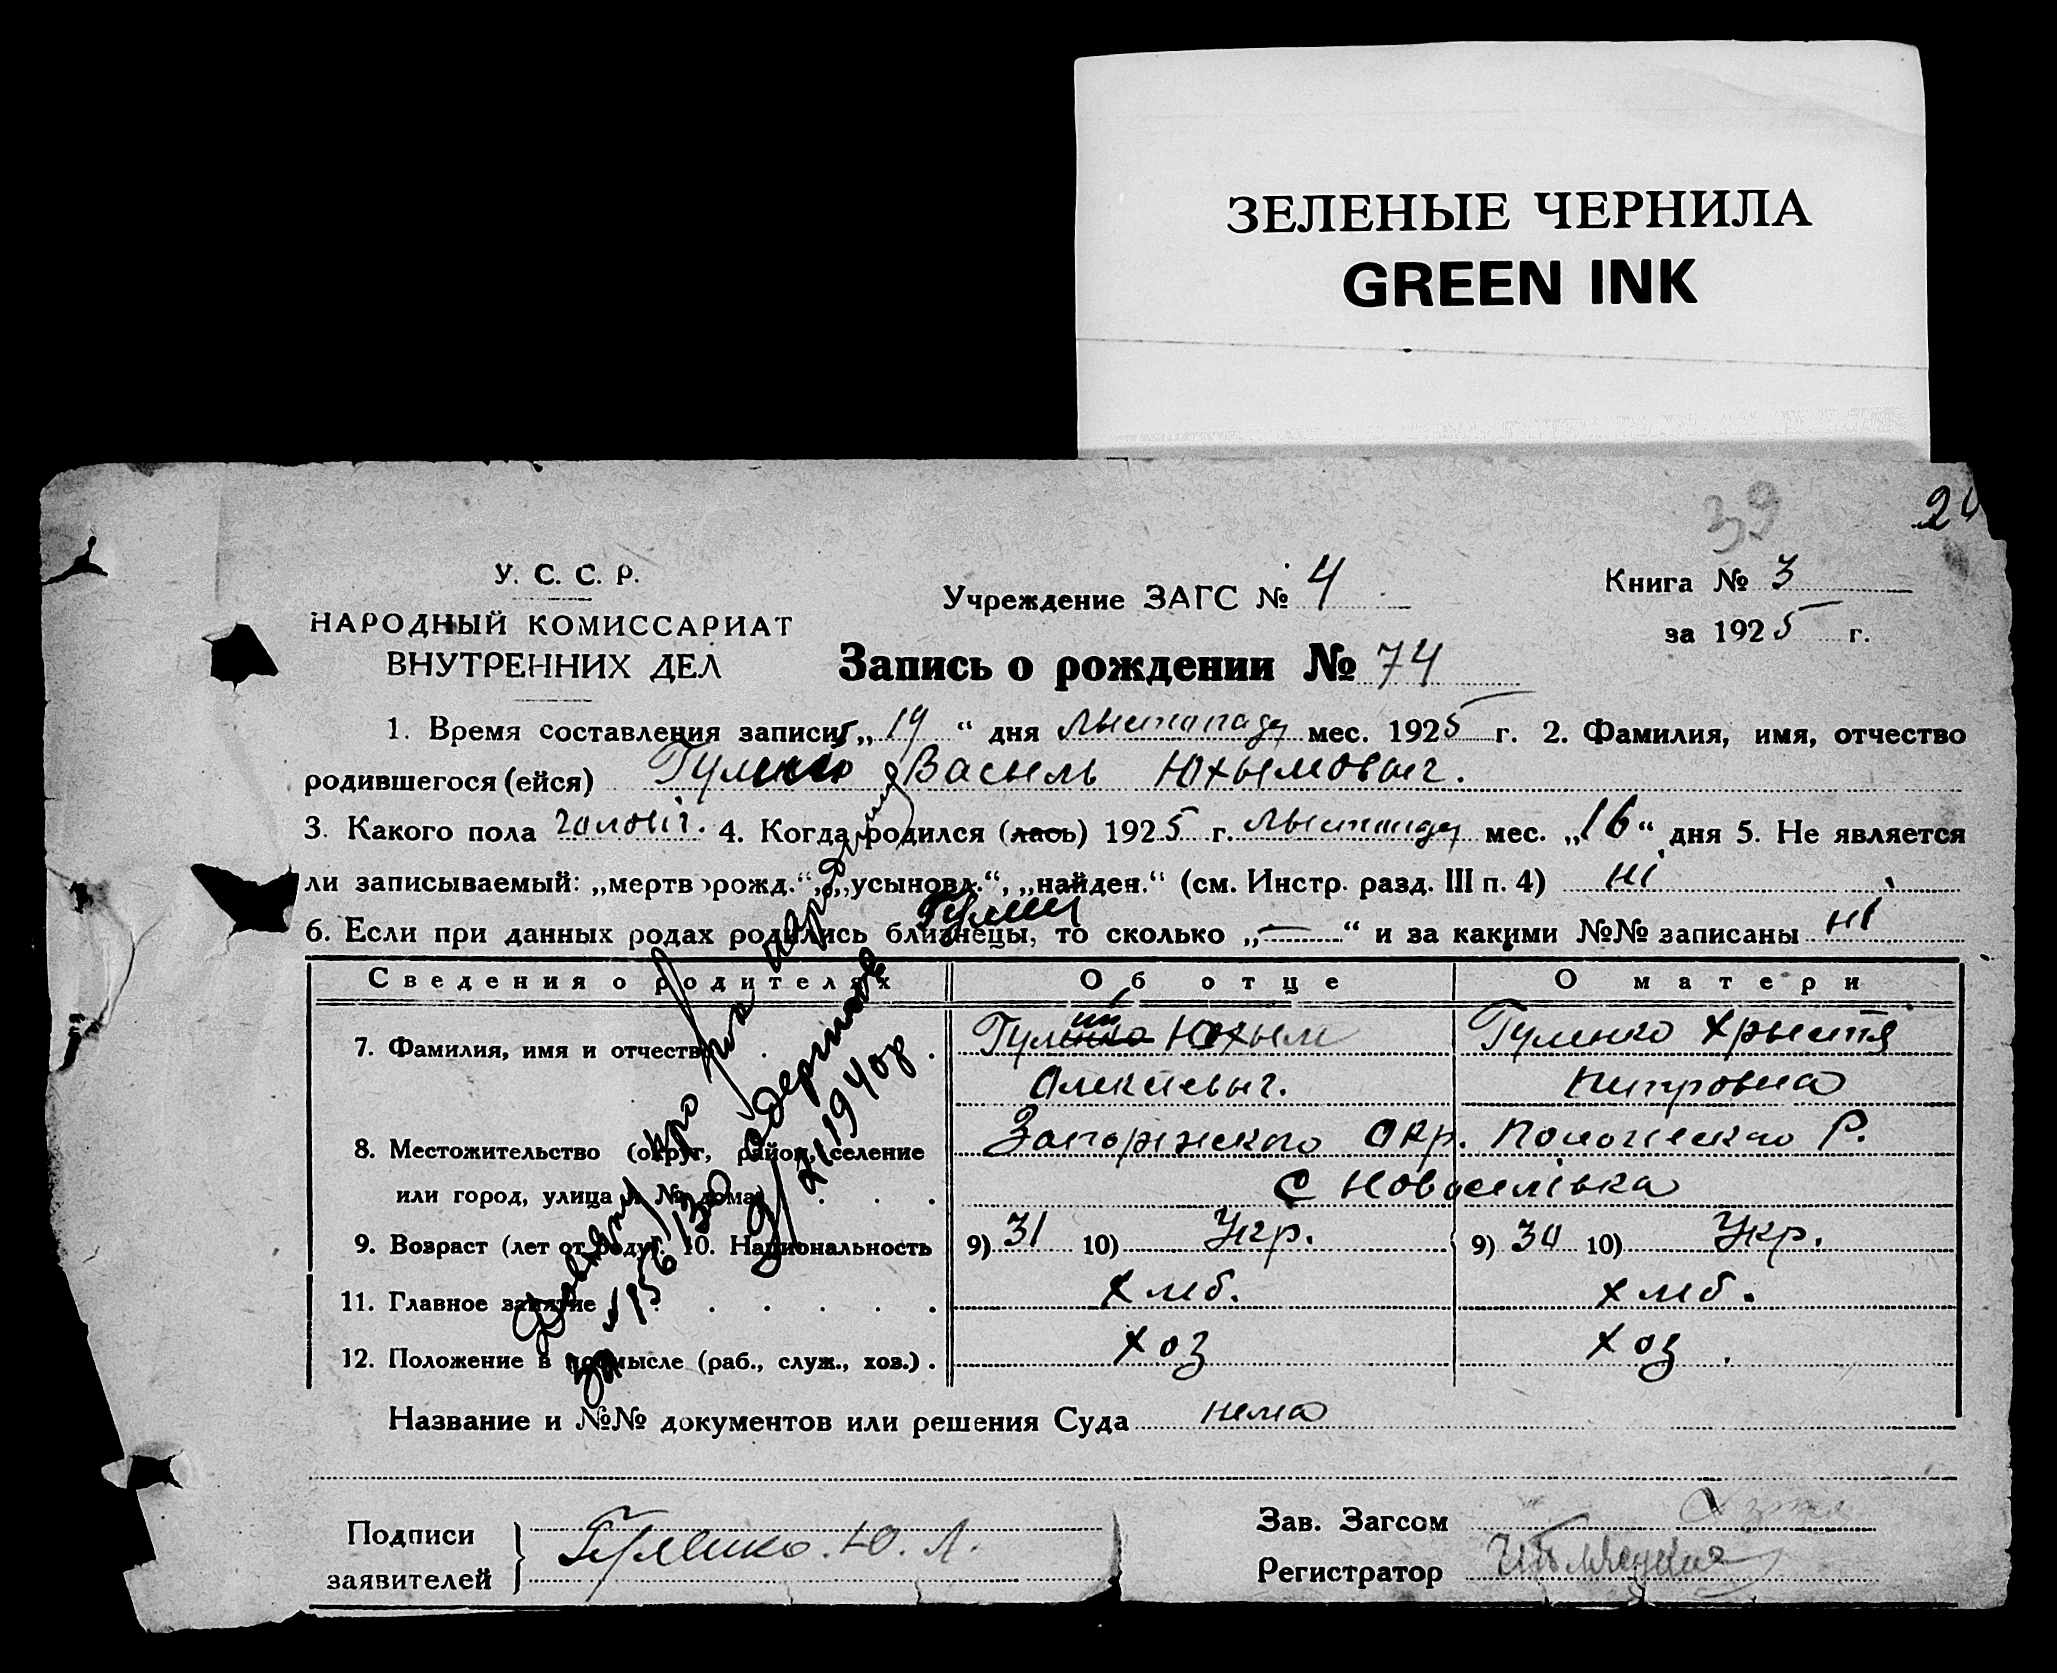 ЗЕЛЕНЫЕ ЧЕРНИЛА
GREEN INK
39
У. С. С. Р.
НАРОДНЫЙ КОМИССАРИАТ
ВНУТРЕННИХ ДЕЛ
Учреждение ЗАГС № 4
Книга № 3
за 1925 г.
Запись о рождении № 74
1. Время составления записи „ 19 “ дня лыстопада мес. 1925 г. 2. Фамилия, имя, отчество
родившегося (ейся) Васыль Юхымовыч.
3. Какого пола чоловіч. 4. Когда родился (лась) 1925 г. лыстопада мес. „16“ дня 5. Не является
ли записываемый: „мертворожд.“, „усыновл.“, „найден.“ (см. Инстр. разд. III п. 4) ні
6. Если при данных родах родились близнецы, то сколько „—“ и за какими №№ записаны ні
Сведения о родителях Об отце О матери
7. Фамилия, имя и отчество Юхым Гуленко Хрыстя
Олексиевыч. Петровна
8. Местожительство (округ, район, селение Запорижского Окр. Пологивского Р.
или город, улица и № дома) С Новоселівка
9. Возраст (лет от роду). 10. Национальность 9) 31 10) Укр. 9) 30 10) Укр.
11. Главное занятие хлеб. хлеб.
12. Положение в промысле (раб., служ., хоз.) хоз хоз
Название и №№ документов или решения Суда нема
Подписи
заявителей Гуленко. Ю. А.
Зав. Загсом
Регистратор